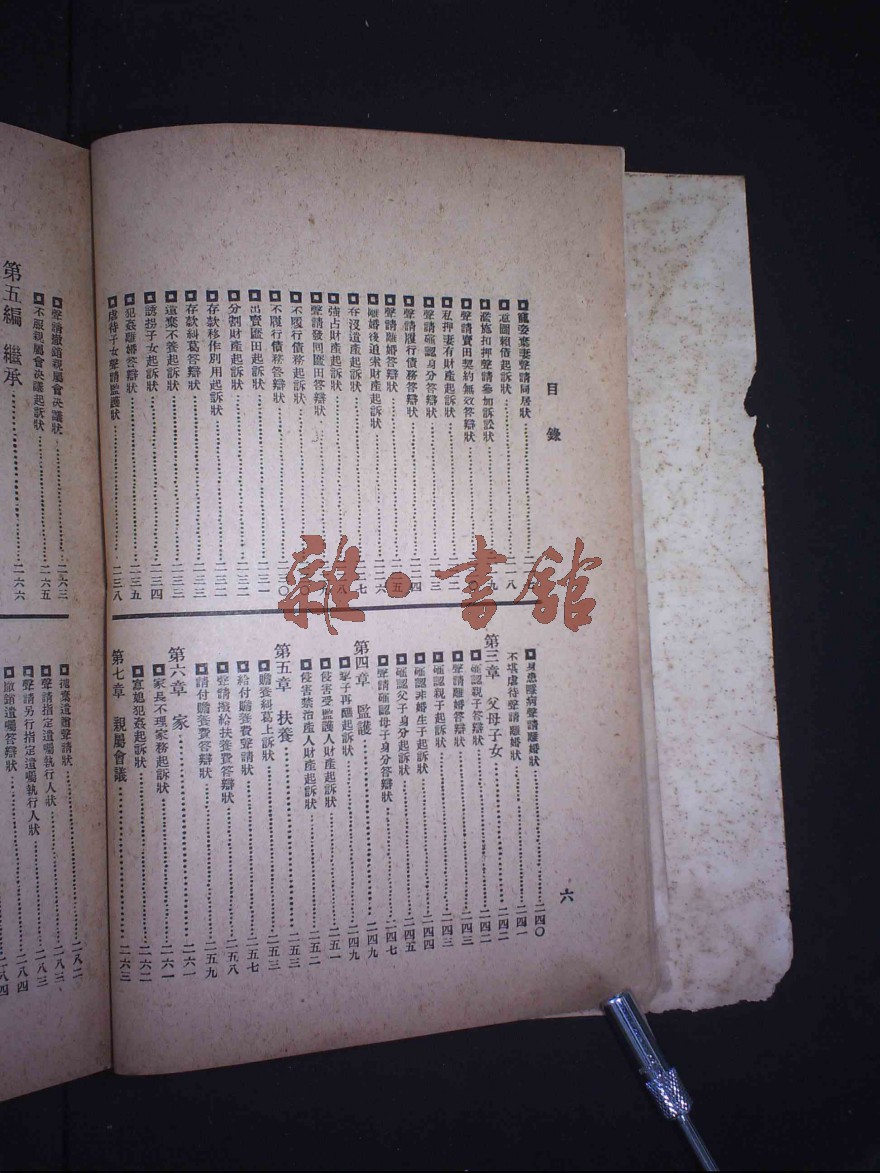 目錄
寵妾棄妻聲請同居狀
意圖賴債起訴狀……二一八
濫施扣押聲請參加訴訟狀
聲請賣田契約無效答辯狀
私押妻有財產起訴狀
聲請確認身分答辯狀
聲請履行債務答辯狀
聲請離婚答辯狀
離婚後追索財產起訴狀……二二六
吞沒遺產起訴狀
強占財產起訴狀
聲請發回匯田答辯狀
不履行債務起訴狀
不履行債務答辯狀……二三〇
出賣匯田起訴狀……二三一
分割財產起訴狀……二三二
存款移作別用起訴狀……二三二
存款糾葛答辯狀……二三三
遺棄不養起訴狀……二三三
誘拐子女起訴狀……二三四
犯姦離婚答辯狀……二三五
虐待子女聲請監護狀……二三八
身患隱病聲請離婚狀……二四〇
不堪虐待聲請離婚狀……二四一
第三章 父母子女……二四二
確認親子答辯狀……二四二
聲請離婚答辯狀……二四三
確認親子起訴狀……二四三
確認非婚生子起訴狀……二四四
確認父子身分起訴狀……二四五
聲請確認母子身分答辯狀……二四七
第四章 監護……二四九
孥子再醮起訴狀……二四九
侵害受監護人財產起訴狀……二五一
侵害禁治產人財產起訴狀……二五二
第五章 扶養……二五三
贍養糾葛上訴狀……二五三
給付贍養費聲請狀……二五七
聲請撥給扶養費答辯狀……二五八
請付贍養費答辯狀……二五九
第六章 家……二六一
家長不理家務起訴狀……二六一
寡媳犯姦起訴狀……二六二
第七章 親屬會議……二六三
六
聲請撤銷親屬會決議狀……二六三
不服親屬會決議起訴狀……二六五
第五編 繼承……二六六
拋棄遺贈聲請狀……二八二
聲請指定遺囑執行人狀……二八三
聲請另行指定遺囑執行人狀……二八三
撤銷遺囑答辯狀……二八四
雜·書館